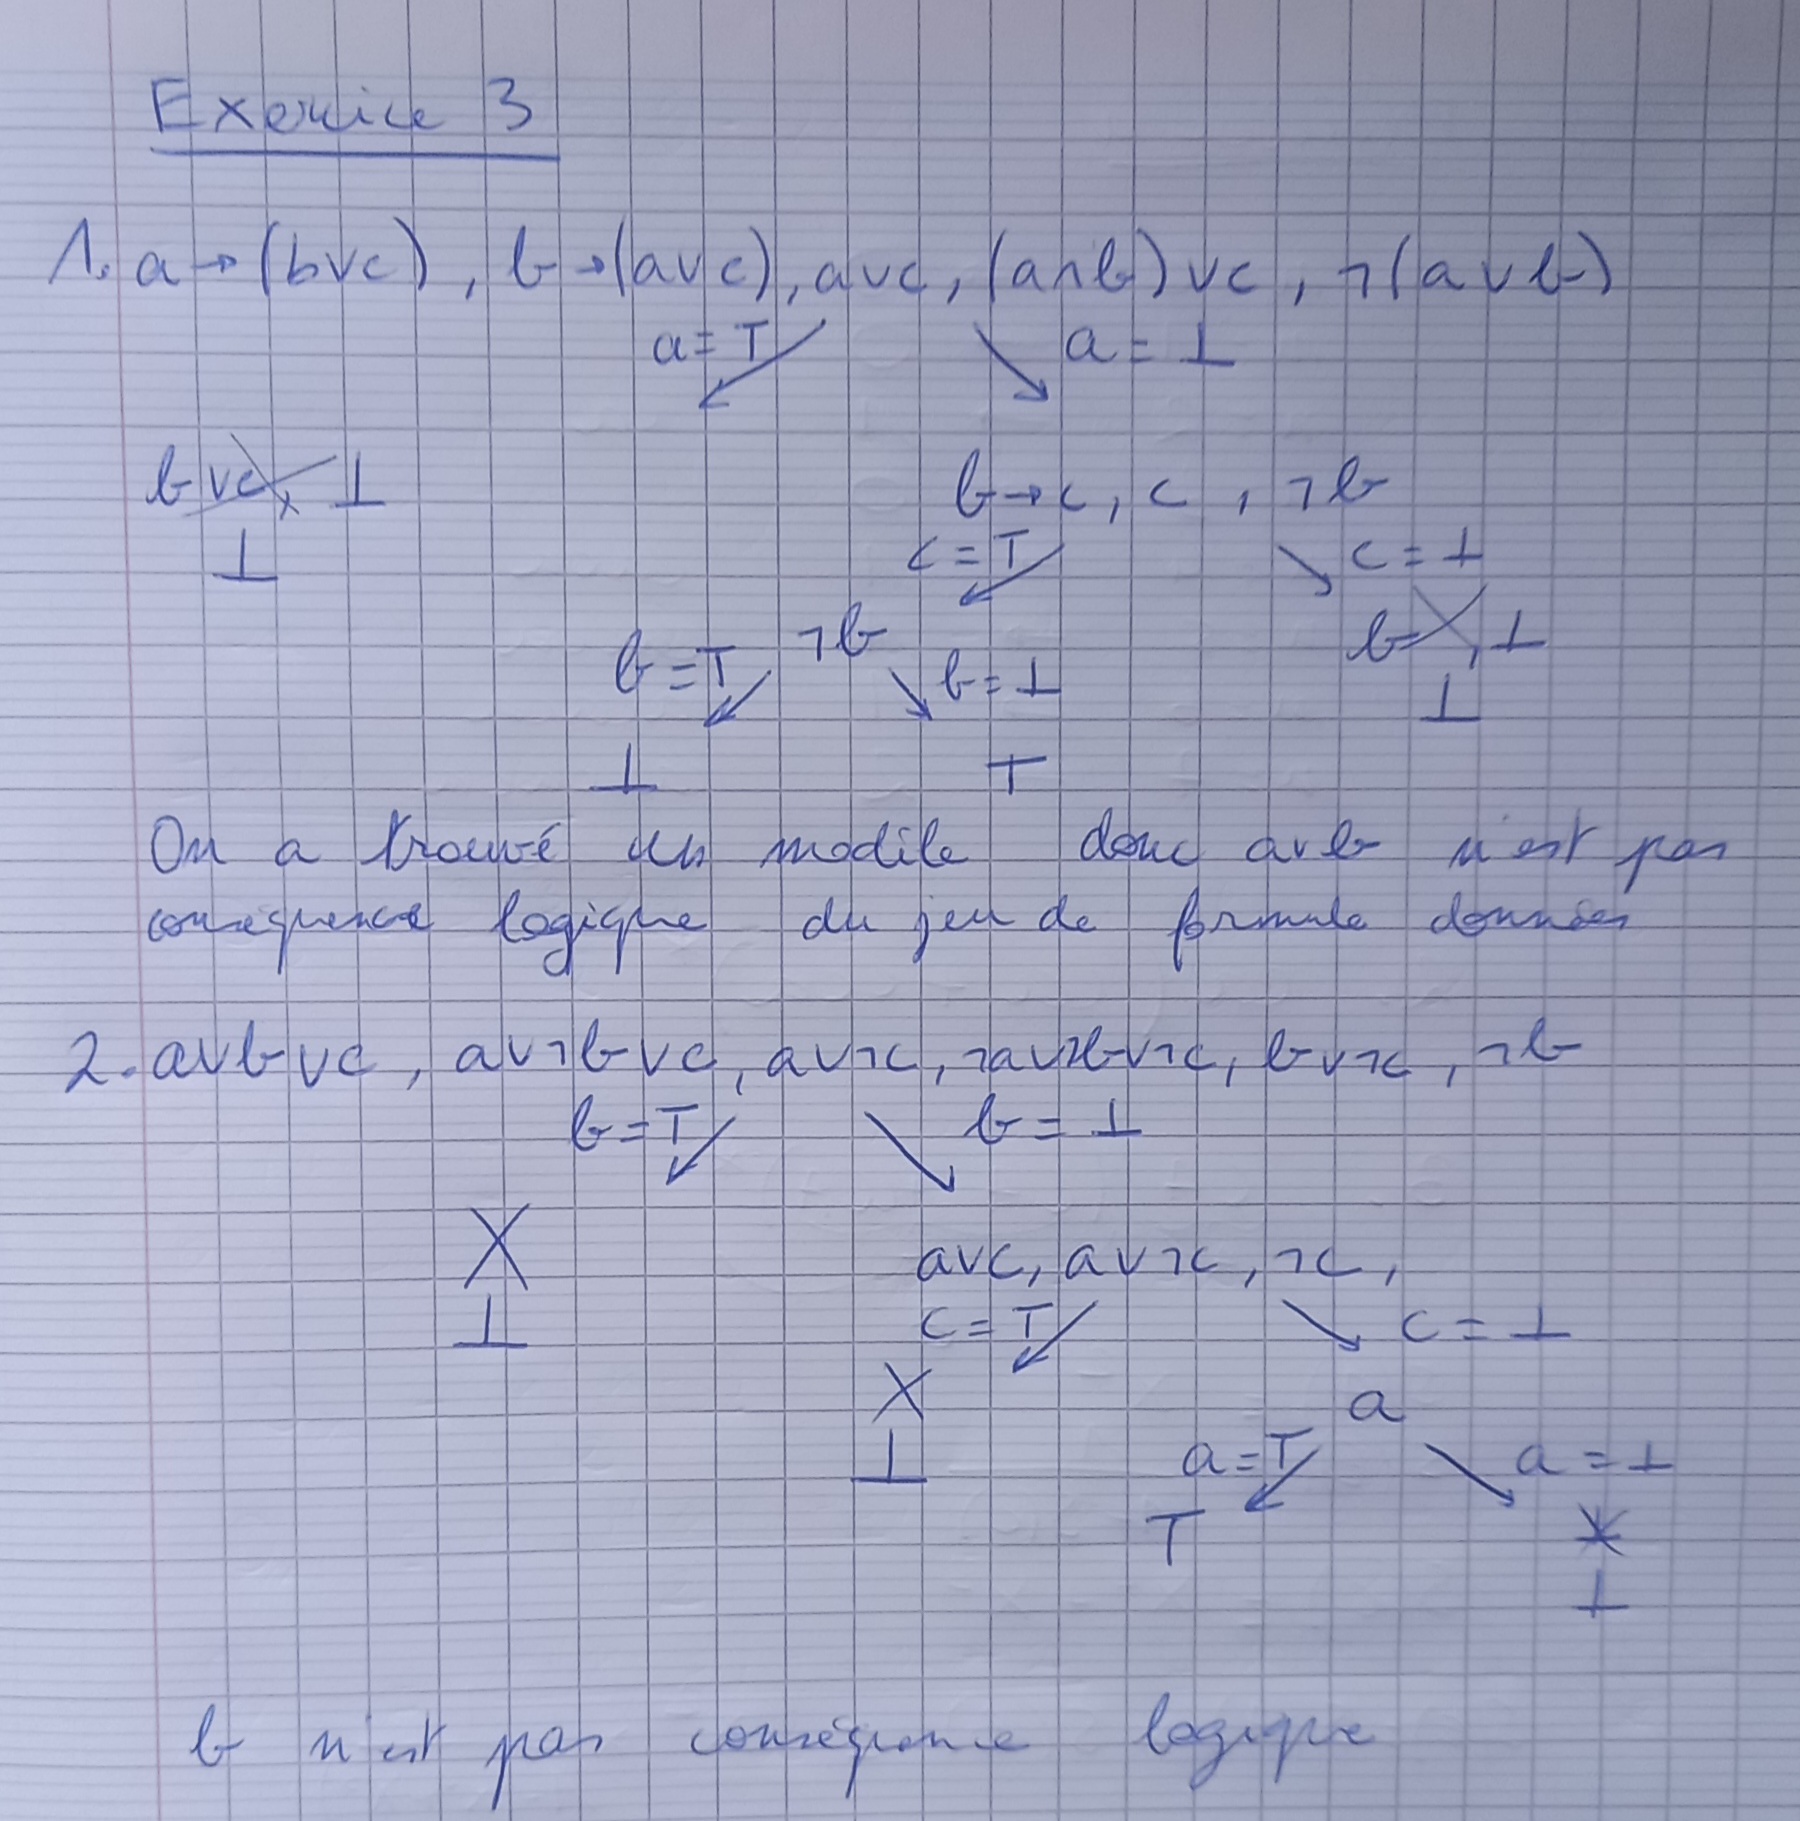 Exercice 3
1. a → (b∨c), b → (a∨c), a∨c, (a∧b)∨c, ¬(a∨b)
a = T a = ⊥
b∨c, ⊥ b → c, c, ¬b
⊥ c = T c = ⊥
¬b b, ⊥
b = T b = ⊥ ⊥
⊥ T
On a trouvé un modèle donc a∨b n'est pas
conséquence logique du jeu de formule données
2. a∨b∨c, a∨¬b∨c, a∨¬c, ¬a∨¬b∨¬c, b∨¬c, ¬b
b = T b = ⊥
X a∨c, a∨¬c, ¬c,
⊥ c = T c = ⊥
X a
⊥ a = T a = ⊥
T X
⊥
b n'est pas conséquence logique